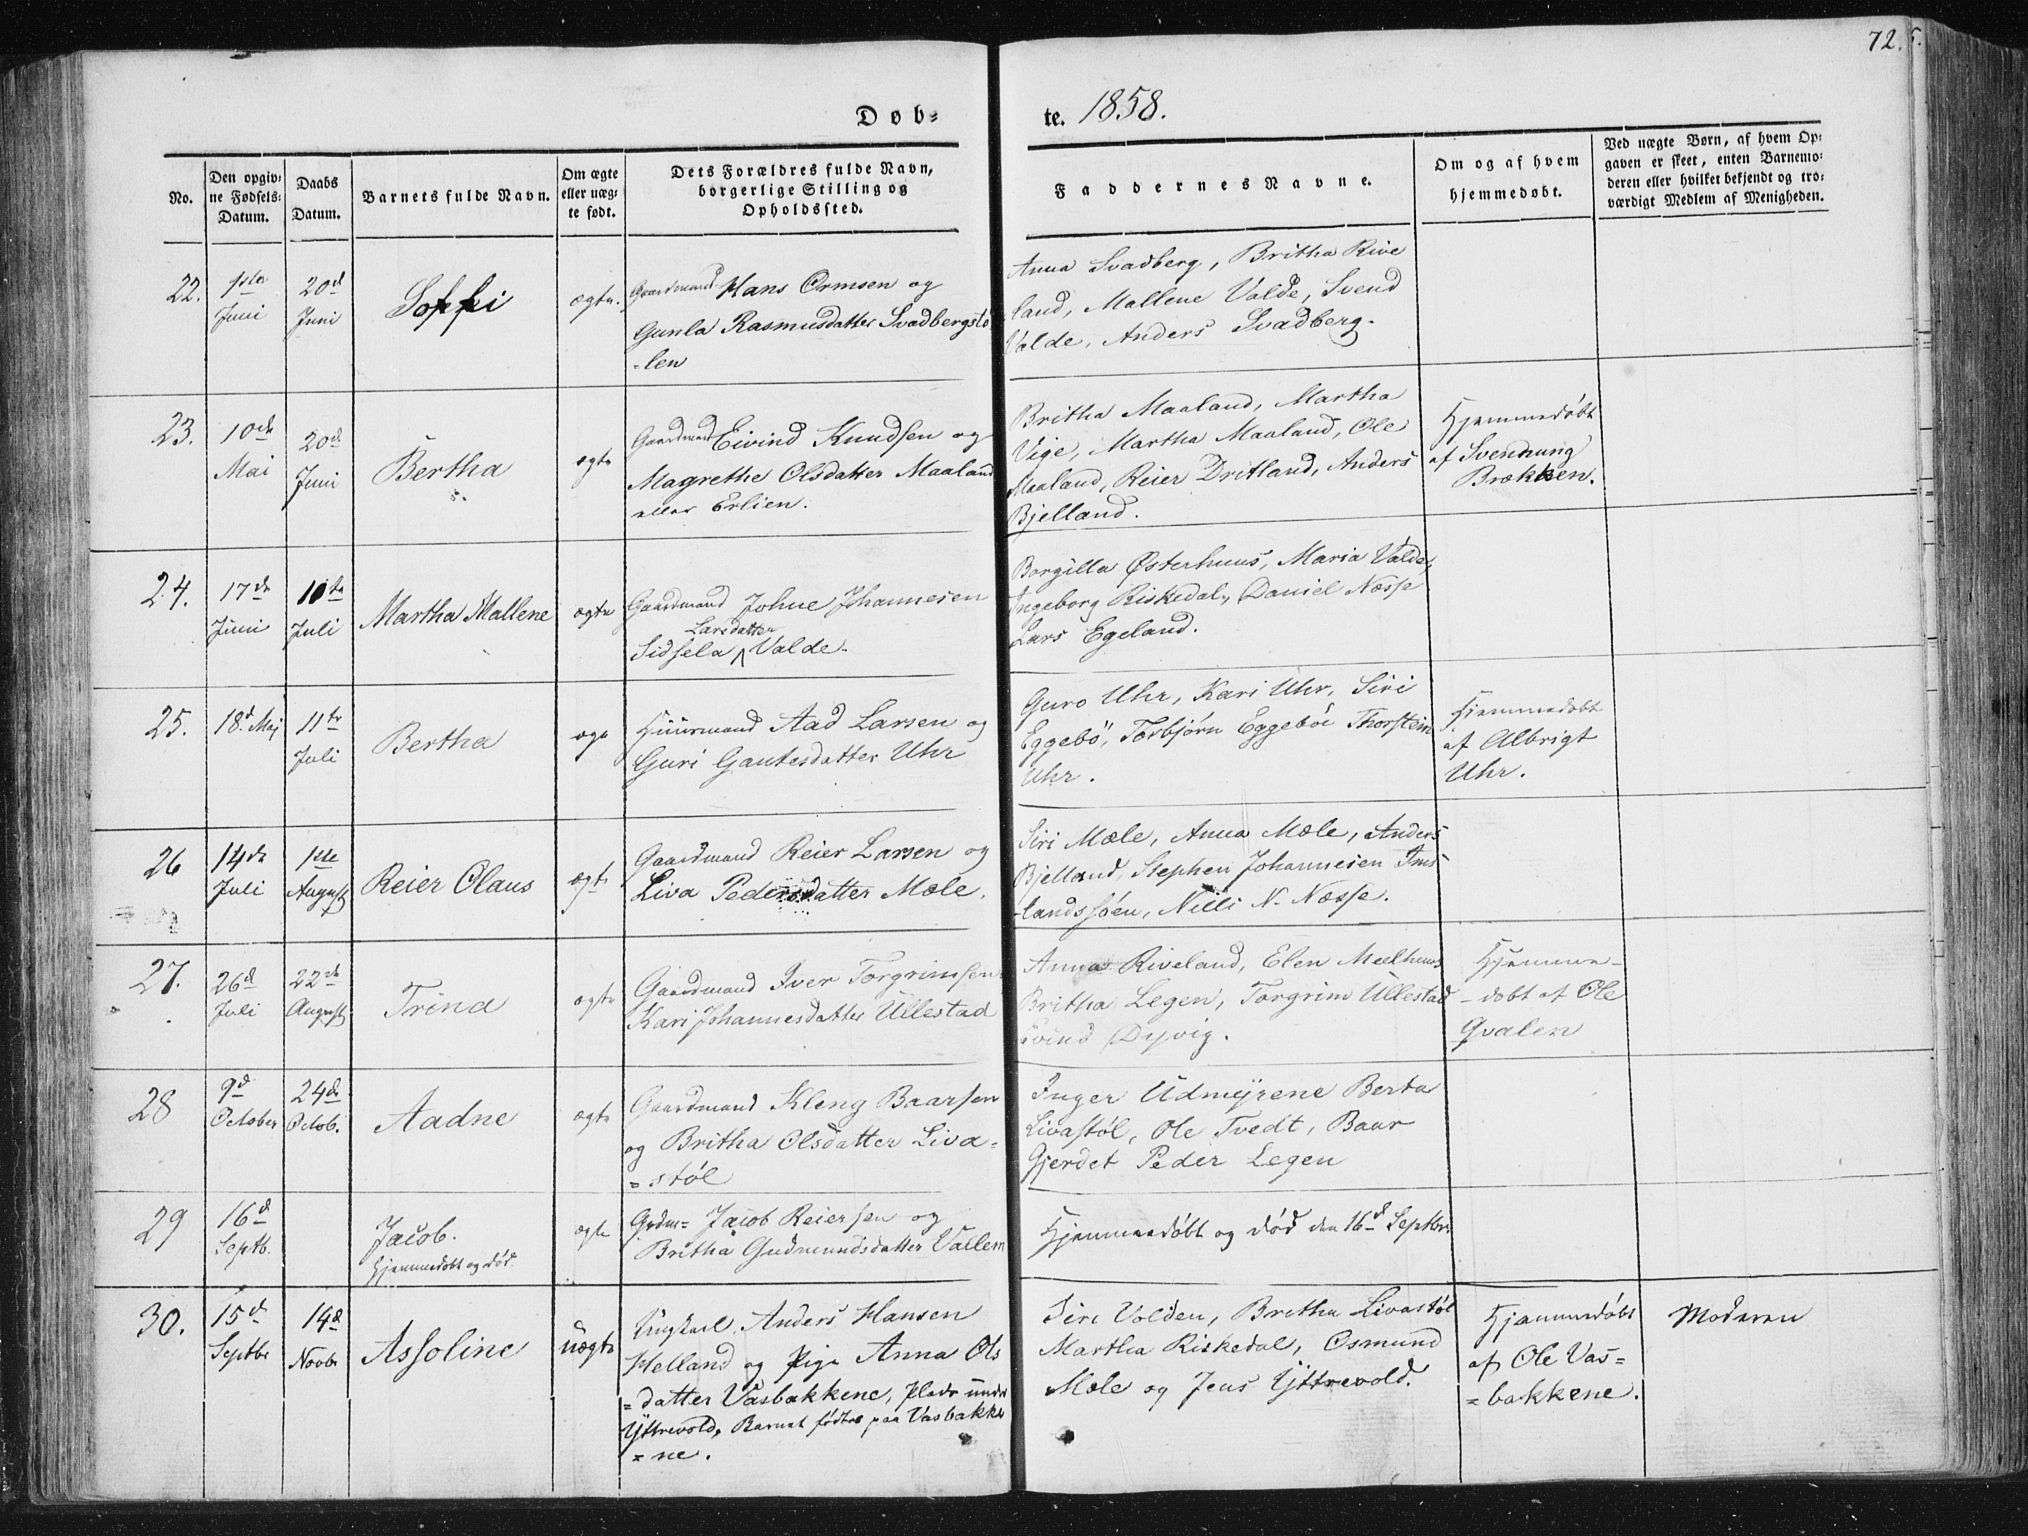 72.
Døb-
te. 1858.
No.
Den opgiv-
ne Fødsels-
Datum.
Daabs
Datum.
Barnets fulde Navn.
Om ægte
eller uæg-
te født.
Dets Forældres fulde Navn,
borgerlige Stilling og
Opholdssted.
Faddernes Navne.
Om og af hvem
hjemmedøbt.
Ved uægte Børn, af hvem Op-
gaven er skeet, enten Barnemo-
deren eller hvilket bekjendt og tro-
værdigt Medlem af Menigheden.
22.
1ste
Juni
20d
Juni
Soffi
ægte.
Gaardmand Hans Ormsen og
Gunla Rasmusdatter Svadbergstø
-len
Anna Svadberg, Britha Rive
land, Mallene Valde, Svend
Valde, Anders Svadberg.
23.
10de
Mai
20de
Juni
Bertha
ægte
Gaardmand Eivind Knudsen og
Magrethe Olsdatter Maaland
eller Erlien.
Britha Maaland, Martha
Vige, Martha Maaland, Ole
Maaland, Reier Dritland, Anders
Bjelland.
Hjemmedøbt
af Svendung
Brækken.
24.
17de
Juni
10de
Juli
Martha Mallene
ægte
Gaardmand Johne Johannesen
Larsdatter
Sidsela Valde.
Borgilla Østerhuus, Maria Valde,
Ingeborg Riskedal, Daniel Næsse
Lars Egeland.
25.
18d. Maj
11te
Juli
Bertha
ægte
Huusmand Aad Larsen og
Guri Gautesdatter Uhr
Guro Uhr, Kari Uhr, Siri
Eggebö, Torbjørn Eggeböe Thorstein
Uhr.
Hjemmedøbt
af Albrigt
Uhr.
26
14de
Juli
1ste
August
Reier Olaus
ægte
Gaardmand Reier Larsen og
Liva Pedersdatter Mæle.
Siri Mæle, Anna Mæle, Anders
Bjelland, Stephen Johannesen Ims-
landssøen, Nills N. Næsse.
27.
26d
Juli
22de
August
Trina
ægte
Gaardmand Iver Torgrimsen
Kari Johannesdatter Ullestad
Anna Riveland, Elen Mælhuus
Britha Legen, Torgrim Ullestad
Eivind Dyvig.
Hjemme-
-døbt af Ole
Qvalen
28
9d
October
24de
Octob.
Aadne
ægte
Gaardmand Kleng Baarsen
og Britha Olsdatter Liva=
=støl
Inger Udmyrene Berta
Livastøl, Ole Tvedt, Baar
Gjerdet Peder Legen
29
16d
Septb.
Jacob.
Hjemmedøbt og død.
ægte
Grdm= Jacob Reiersen og
Britha Gudmundsdatter Vallem
Hjemmedøbt og død den 16d Septbr.
30.
15d
Septbr
14d
Novbr
Assoline
uægte
Ungkarl Anders Hansen
Helland og Pige Anna Ols
=datter Vasbakkene, Plads under
Yttrevold, Barnet fødtes paa Vasbakke
=ne.
Siri Volden, Britha Livastøl
Martha Riskedal, Osmund
Mæle og Jens Yttrevold.
Hjemmedøbt
af Ole Vas=
=bakkene.
Moderen